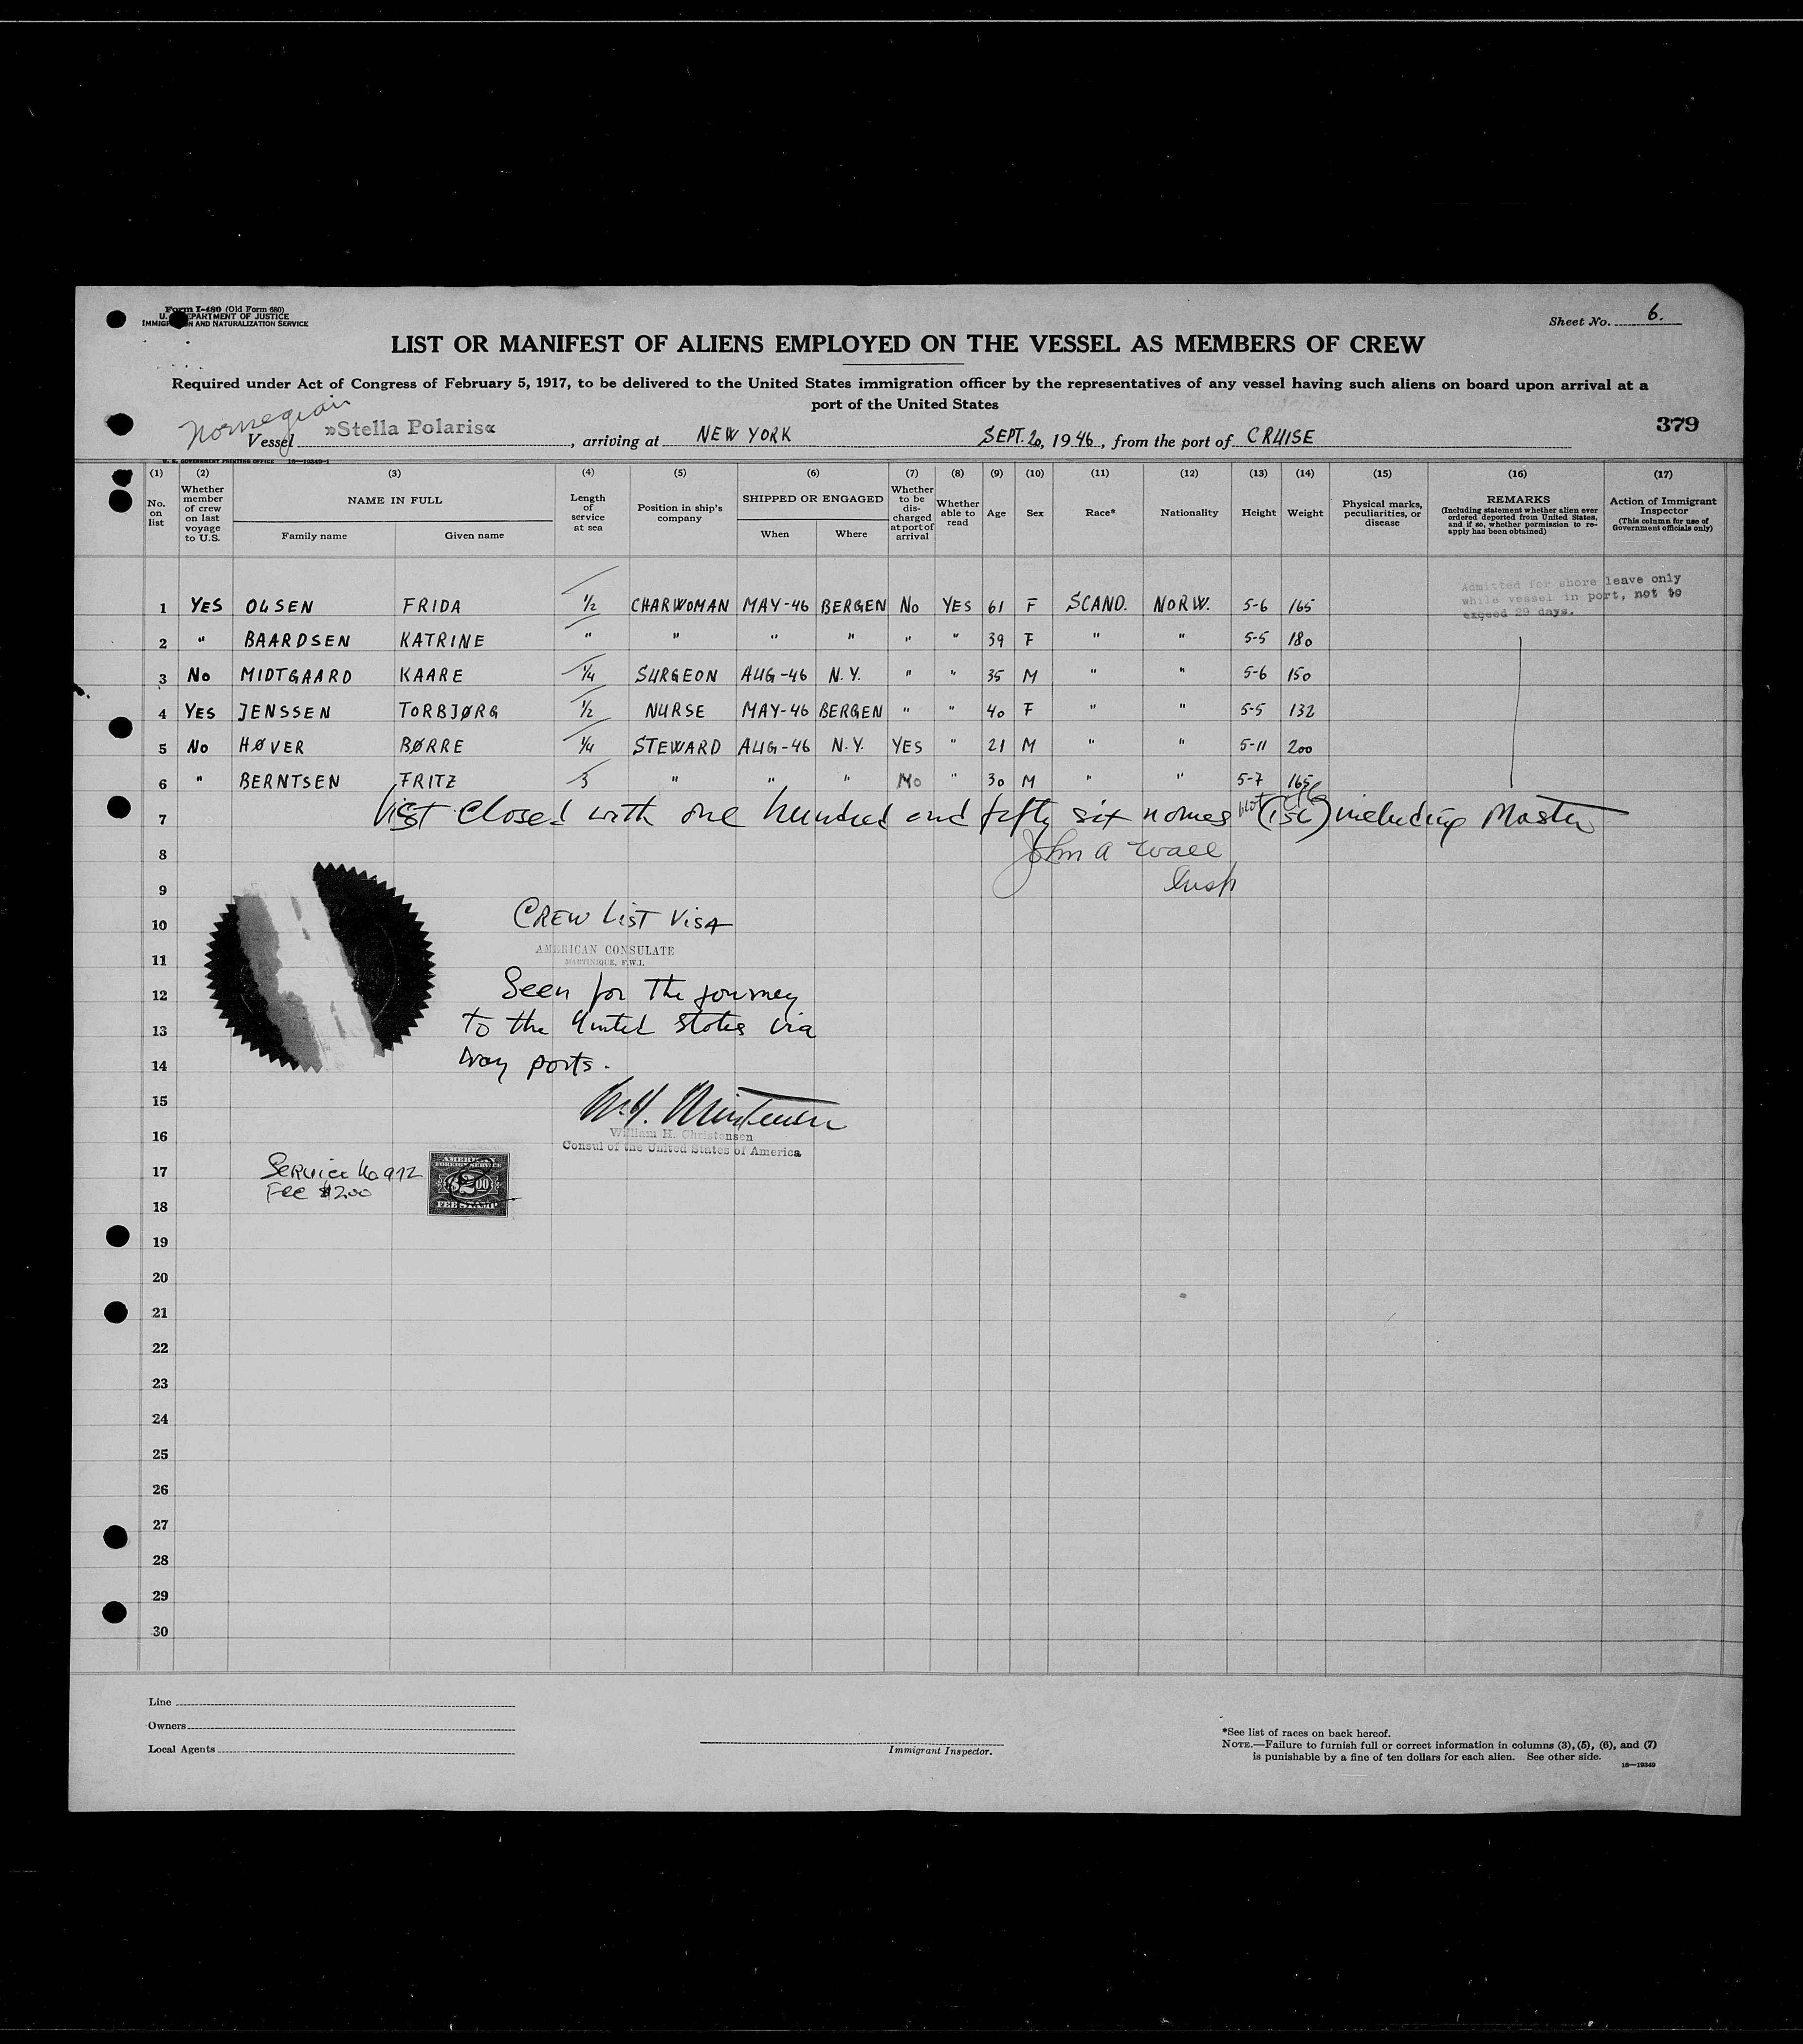 Form I-480 (Old Form 680)
U. DEPARTMENT OF JUSTICE
IMMIGRATION AND NATURALIZATION SERVICE
Sheet No. 6.
LIST OR MANIFEST OF ALIENS EMPLOYED ON THE VESSEL AS MEMBERS OF CREW
Required under Act of Congress of February 5, 1917, to be delivered to the United States immigration officer by the representatives of any vessel having such aliens on board upon arrival at a
port of the United States
379
Norwegian
Vessel »Stella Polaris«, arriving at NEW YORK SEPT. 20, 1946, from the port of CRUISE
U. S. GOVERNMENT PRINTING OFFICE 16—19349-1
(1) (2) (3) (4) (5) (6) (7) (8) (9) (10) (11) (12) (13) (14) (15) (16) (17)
No. on list
Whether member of crew on last voyage to U.S.
NAME IN FULL
Family name
Given name
Length of service at sea
Position in ship's company
SHIPPED OR ENGAGED
When
Where
Whether to be discharged at port of arrival
Whether able to read
Age
Sex
Race*
Nationality
Height
Weight
Physical marks, peculiarities, or disease
REMARKS
(Including statement whether alien ever ordered deported from United States, and if so, whether permission to reapply has been obtained)
Action of Immigrant Inspector
(This column for use of Government officials only)
Admitted for shore leave only
while vessel in port, not to
exceed 29 days.
1 YES OLSEN FRIDA 1/2 CHARWOMAN MAY-46 BERGEN NO YES 61 F SCAND. NORW. 5-6 165
2 " BAARDSEN KATRINE " " " " " " 39 F " " 5-5 180
3 NO MIDTGAARD KAARE 1/4 SURGEON AUG-46 N.Y. " " 35 M " " 5-6 150
4 YES JENSSEN TORBJØRG 1/2 NURSE MAY-46 BERGEN " " 40 F " " 5-5 132
5 NO HØVER BØRRE 1/4 STEWARD AUG-46 N.Y. YES " 21 M " " 5-11 200
6 " BERNTSEN FRITZ 3 " " " No " 30 M " " 5-7 165
7 List closed with one hundred and fifty six names (156) including Master
8 John A Wall
9 Insp
10 CREW LIST VISA
11 AMERICAN CONSULATE
MARTINIQUE, F.W.I.
12 Seen for the journey
13 to the United States via
14 way ports.
15
16 William H. Christensen
Consul of the United States of America
17 Service No 972
Fee $2.00
AMERICAN
FOREIGN SERVICE
$2.00
FEE STAMP
18
19
20
21
22
23
24
25
26
27
28
29
30
Line
Owners
Local Agents
Immigrant Inspector.
*See list of races on back hereof.
NOTE.—Failure to furnish full or correct information in columns (3), (5), (6), and (7)
is punishable by a fine of ten dollars for each alien. See other side.
16—19349